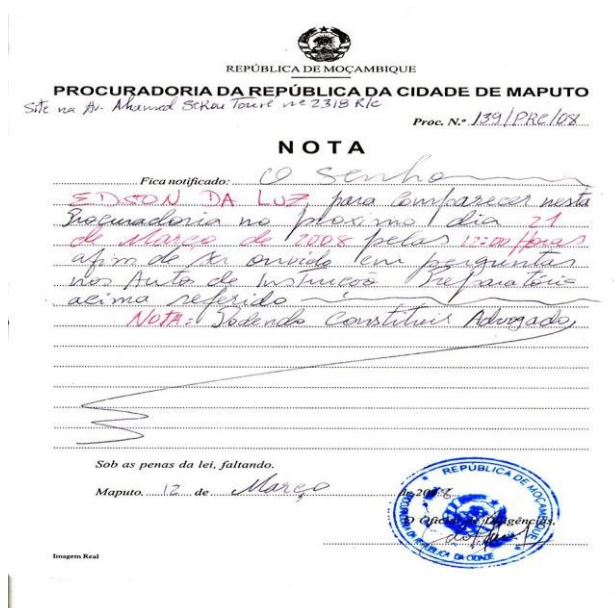 REPÚBLICA DE MOÇAMBIQUE
PROCURADORIA DA REPÚBLICA DA CIDADE DE MAPUTO
Site na Av. Ahamed Sekou Touré nº 2318 R/c
Proc. N.º 139/PRC/08
NOTA
Fica notificado: O Senhor
EDSON DA LUZ, para comparecer nesta
Procuradoria no proximo dia 21
de Março de 2008 pelas 12:00 horas
afim de ser ouvido em perguntas
nos Autos de Instrução Preparatória
acima referido
NOTA: Podendo Constituir Advogado
Sob as penas da lei, faltando.
Maputo, 12 de Março de 200
O Oficial de Diligências,
REPÚBLICA DE MOÇAMBIQUE
REPÚBLICA DA CIDADE
Imagem Real